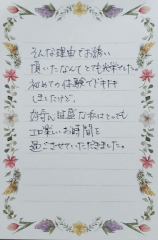 そんな理由でお誘い
頂いたなんてとても光栄でした。
初めての体験でドキドキ
しましたけど、
好奇心旺盛な私はとっても
楽しいお時間を
過ごさせていただきました。